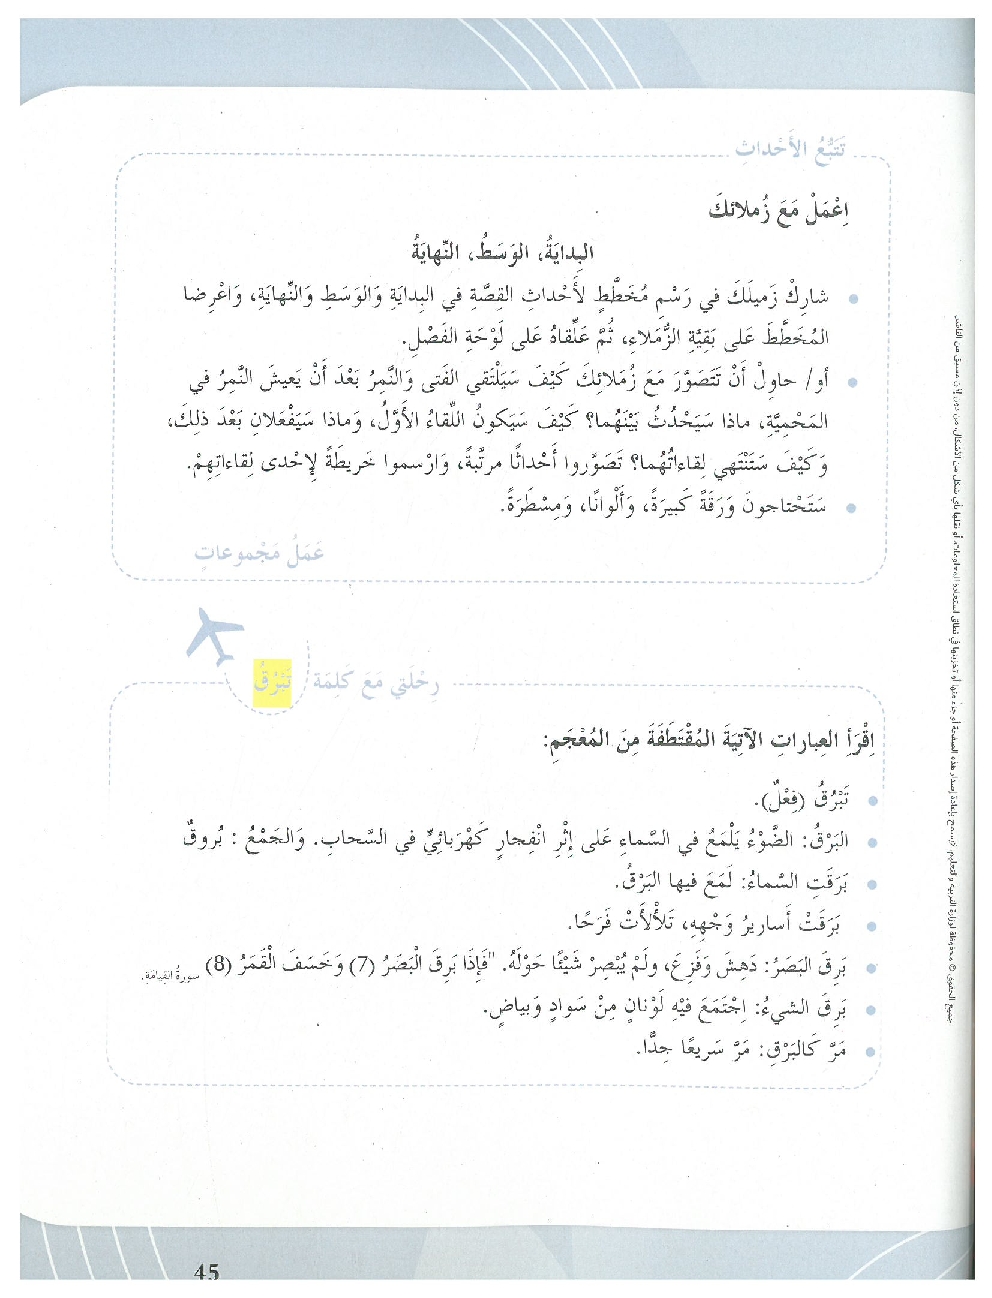 تَتَبُّعُ الأَحْداثِ
اِعْمَلْ مَعَ زُملائكَ
البِدايَةُ، الوَسَطُ، النِّهايَةُ
شارِكْ زَميلَكَ في رَسْمِ مُخَطَّطٍ لأَحْداثِ القِصَّةِ في البِدايَةِ وَالوَسَطِ وَالنِّهايَةِ، وَاعْرِضا
المُخَطَّطَ عَلى بَقِيَّةِ الزُّمَلاءِ، ثُمَّ عَلِّقاهُ عَلى لَوْحَةِ الفَصْلِ.
أو/ حاوِلْ أَنْ تَتَصَوَّرَ مَعَ زُمَلائِكَ كَيْفَ سَيَلْتَقي الفَتى وَالنَّمِرُ بَعْدَ أَنْ يَعيشَ النَّمِرُ في
المَحْمِيَّةِ، ماذا سَيَحْدُثُ بَيْنَهُما؟ كَيْفَ سَيَكونُ اللِّقاءُ الأَوَّلُ، وَماذا سَيَفْعَلانِ بَعْدَ ذلِكَ،
وَكَيْفَ سَتَنْتَهي لِقاءاتُهُما؟ تَصَوَّروا أَحْداثًا مرتَّبةً، وَارْسموا خَريطَةً لِإِحْدى لِقاءاتِهِمْ.
سَتَحْتاجونَ وَرَقَةً كَبيرَةً، وَأَلْوانًا، وَمِسْطَرَةً.
عَمَلُ مَجْموعاتٍ
رِحْلَتي مَعَ كَلِمَة تَبْرْقُ
اِقْرَأِ العِباراتِ الآتِيَةَ المُقْتَطَفَةَ مِنَ المُعْجَمِ:
تَبْرُقُ (فِعْلٌ).
البَرْقُ: الضَّوْءُ يَلْمَعُ في السَّماءِ عَلى إِثْرِ انْفِجارٍ كَهْرَبائِيٍّ في السَّحابِ. وَالجَمْعُ : بُروقٌ
بَرَقَتِ السَّماءُ: لَمَعَ فيها البَرْقُ.
بَرَقَتْ أَساريرُ وَجْهِهِ، تَلَأْلَأَتْ فَرَحًا.
بَرِقَ البَصَرُ: دَهِشَ وَفَزِعَ، ولَمْ يُبْصِرْ شَيْئًا حَوْلَهُ. "فَإِذَا بَرِقَ الْبَصَرُ (7) وَخَسَفَ الْقَمَرُ (8) سورةُ القيامَةِ.
بَرِقَ الشيءُ: اِجْتَمَعَ فيْهِ لَوْنانِ مِنْ سَوادٍ وَبَياضٍ.
مَرَّ كَالبَرْقِ: مَرَّ سَريعًا جِدًّا.
جميع الحقوق © محفوظة لوزارة التربية والتعليم. لا يسمح بإعادة إصدار هذه الصفحة أو جزء منها أو تخزينها في نطاق استعادة المعلومات أو نقلها بأي شكل من الأشكال، من دون إذن مسبق من الناشر.
45